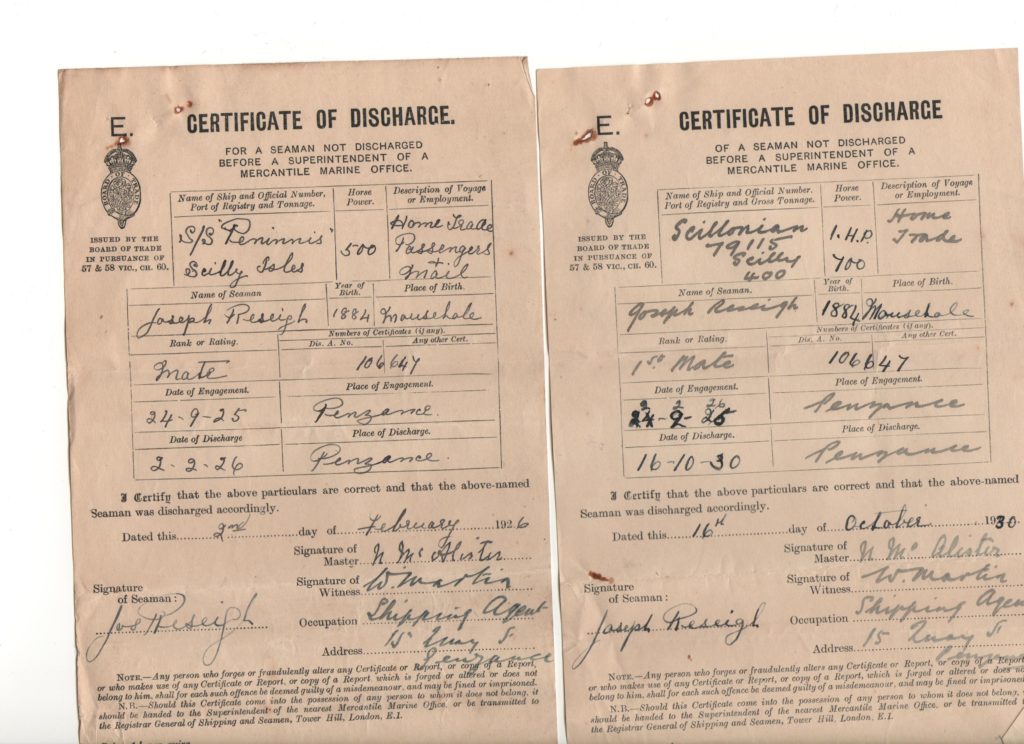 E. CERTIFICATE OF DISCHARGE.
FOR A SEAMAN NOT DISCHARGED
BEFORE A SUPERINTENDENT OF A
MERCANTILE MARINE OFFICE.
ISSUED BY THE
BOARD OF TRADE
IN PURSUANCE OF
57 & 58 VIC., CH. 60.
Name of Ship and Official Number, Port of Registry and Tonnage.
Horse Power.
Description of Voyage or Employment.
S/S "Peninnis"
Scilly Isles
500
Home Trade
Passengers
+
Mail
Name of Seaman Year of Birth. Place of Birth.
Joseph Reseigh 1884 Mousehole
Rank or Rating. Numbers of Certificates (if any).
Dis. A. No. Any other Cert.
Mate 106647
Date of Engagement. Place of Engagement.
24-9-25 Penzance.
Date of Discharge Place of Discharge.
2-2-26 Penzance.
I Certify that the above particulars are correct and that the above-named
Seaman was discharged accordingly.
Dated this 2nd day of February 1926
Signature of Master N McAlister
Signature of Witness W. Martin
Signature of Seaman: Jos Reseigh
Occupation Shipping Agent
Address 15 Quay St
Penzance
NOTE.—Any person who forges or fraudulently alters any Certificate or Report, or copy of a Report,
or who makes use of any Certificate or Report, or copy of a Report. which is forged or altered or does not
belong to him, shall for each such offence be deemed guilty of a misdemeanour, and may be fined or imprisoned.
N.B.—Should this Certificate come into the possession of any person to whom it does not belong, it
should be handed to the Superintendent of the nearest Mercantile Marine Office, or be transmitted to
the Registrar General of Shipping and Seamen, Tower Hill, London, E.1.
E. CERTIFICATE OF DISCHARGE
OF A SEAMAN NOT DISCHARGED
BEFORE A SUPERINTENDENT OF A
MERCANTILE MARINE OFFICE.
ISSUED BY THE
BOARD OF TRADE
IN PURSUANCE OF
57 & 58 VIC., CH. 60.
Name of Ship and Official Number, Port of Registry and Gross Tonnage.
Horse Power.
Description of Voyage or Employment.
Scillonian
79115
Scilly
400
I.H.P.
700
Home
Trade
Name of Seaman Year of Birth. Place of Birth.
Joseph Reseigh 1884 Mousehole
Rank or Rating. Numbers of Certificates (if any).
Dis. A. No. Any other Cert.
1st Mate 106647
Date of Engagement. Place of Engagement.
Penzance
Date of Discharge Place of Discharge.
16-10-30 Penzance
I Certify that the above particulars are correct and that the above-named
Seaman was discharged accordingly.
Dated this 16th day of October 1930
Signature of Master N McAlister
Signature of Witness W. Martin
Signature of Seaman: Joseph Reseigh
Occupation Shipping Agent
Address 15 Quay St
NOTE.—Any person who forges or fraudulently alters any Certificate or Report, or copy of a Report,
or who makes use of any Certificate or Report, or copy of a Report, which is forged or altered or does not
belong to him, shall for each such offence be deemed guilty of a misdemeanour, and may be fined or imprisoned.
N.B.—Should this Certificate come into the possession of any person to whom it does not belong,
should be handed to the Superintendent of the nearest Mercantile Marine Office, or be transmitted to
the Registrar General of Shipping and Seamen, Tower Hill, London, E.1.